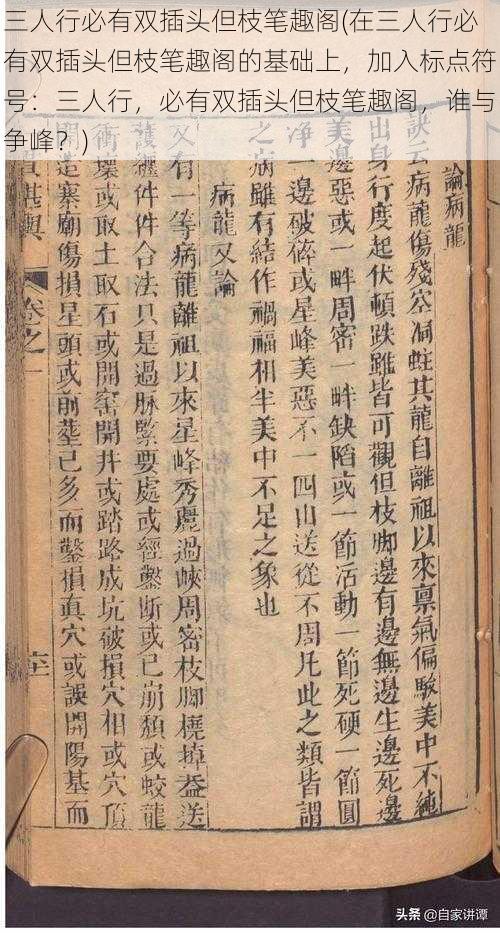 三人行必有双插头但枝笔趣阁(在三人行必
有双插头但枝笔趣阁的基础上，加入标点符
号：三人行，必有双插头但枝笔趣阁，谁与
争峰？)
論病龍
訣云病龍傷殘空洞蛀其龍自離祖以來稟氣偏駁美中不純
出身行度起伏頓跌雖皆可觀但枝脚邊有邊無邊生邊死邊
美邊惡或一畔周密一畔缺陷或一節活動一節死硬一節圓
淨一邊破碎或星峰美惡不一四山送從不周凡此之類皆謂
之病雖有結作禍福相半美中不足之象也
病龍又論
又有一等病龍離祖以來星峰秀麗過峽周密枝脚橈掉蓋送
護纏件件合法只是過脉緊要處或經鑿斷或已崩頹或蛟龍
衝壞或取土取石或開窑開井或踏路成坑破損穴相或穴頂
開造寨廟傷損星頭或前塟已多而鑿損真穴或誤開陽基而
卷之一
头条 @自家讲谭